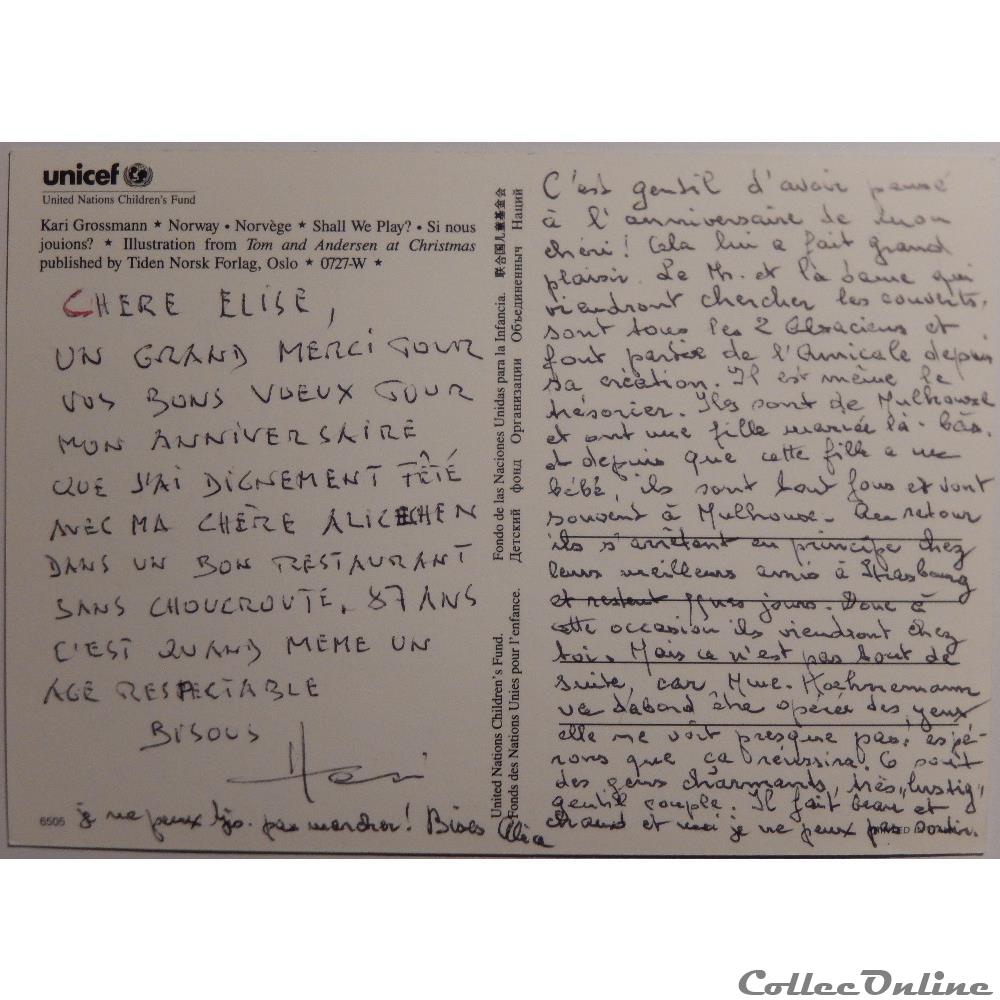 unicef
United Nations Children's Fund
Kari Grossmann ★ Norway • Norvège ★ Shall We Play? • Si nous
jouions? ★ Illustration from Tom and Andersen at Christmas
published by Tiden Norsk Forlag, Oslo ★ 0727-W ★
CHERE ELISE,
UN GRAND MERCI POUR
VOS BONS VOEUX POUR
MON ANNIVERSAIRE
QUE J'AI DIGNEMENT FÊTÉ
AVEC MA CHÈRE ALICECHEN
DANS UN BON RESTAURANT
SANS CHOUCROUTE. 87 ANS
C'EST QUAND MEME UN
AGE RESPECTABLE
BISOUS
je ne peux tjs. pas marcher! Bises Alice
6505
United Nations Children's Fund. Fondo de las Naciones Unidas para la Infancia. 联合国儿童基金会
Fonds des Nations Unies pour l'enfance. Детский фонд Организации Объединенных Наций
C'est gentil d'avoir pensé
à l'anniversaire de mon
chéri! Cela lui a fait grand
plaisir. Le M. et la dame qui
viendront chercher les couverts,
sont tous les 2 Alsaciens et
font partie de l'Amicale depuis
sa création. Il est même le
trésorier. Ils sont de Mulhouse
et ont une fille mariée là-bas.
et depuis que cette fille a un
bébé, ils sont tout fous et vont
souvent à Mulhouse. Au retour
ils s'arrêtent en principe chez
leurs meilleurs amis à Strasbourg
et restent qques jours. Donc à
cette occasion ils viendront chez
toi. Mais ce n'est pas tout de
suite, car Mme. Hoehnemann
va d'abord être opérée des yeux
elle ne voit presque pas! espé-
rons que ça réussira. Ce sont
des gens charmants, très "lustig",
gentil couple. Il fait beau et
chaud et moi je ne peux pas sortir.
CollecOnline